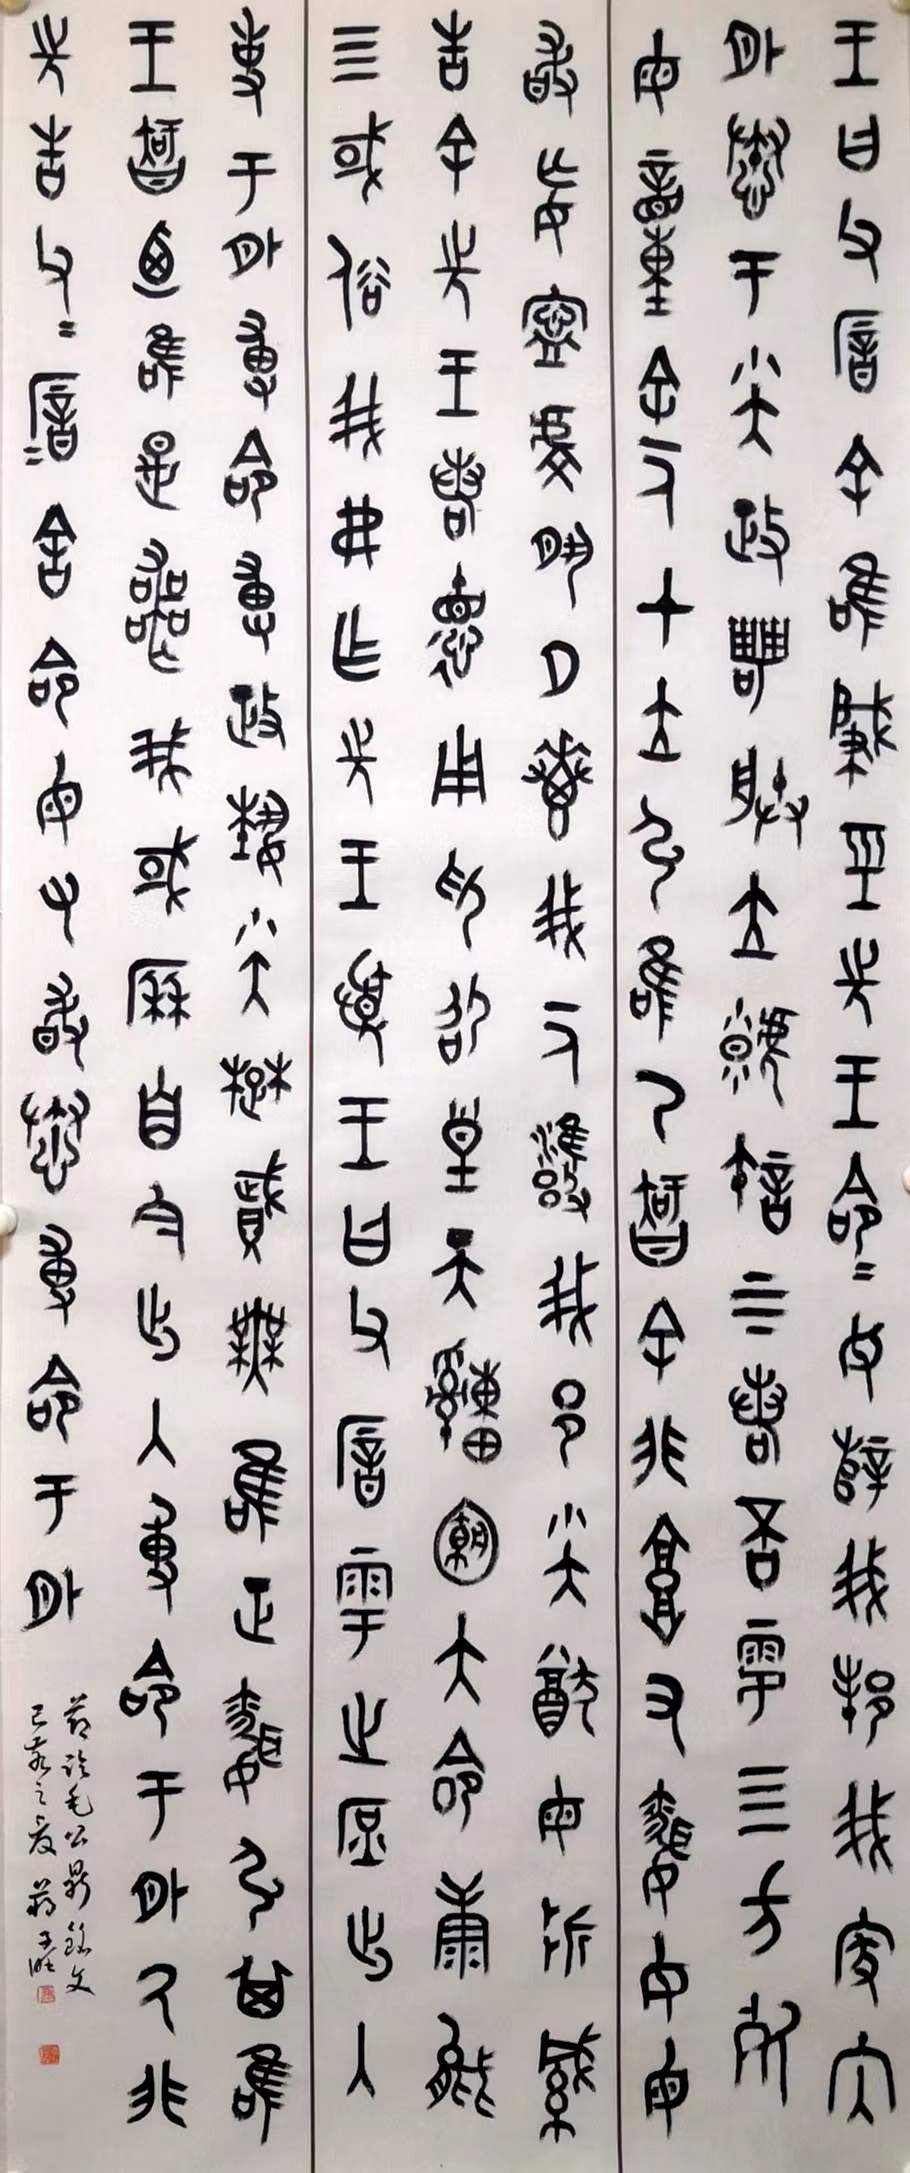 王曰父厝余唯肇巠先王命=女辥我邦我家内
外惷于小大政朕立虩許上下若否雩四方死
毋童余一人才立弘唯乃智余非庸又昏女毋
敢妄寧虔夙夕惠我一人雍我邦小大猷毋折緘
告余先王若德用卬卲皇天大命康能
四或俗我弗乍先王憂王曰父厝雩之庶出入
事于外尃命尃政埶小大楚賦無唯正昏弘其唯
王智迺唯是喪我或歷自今出入尃命于外厥非
先告父=厝=舍命毋又敢惷尃命于外
节临毛公鼎铭文
己亥之夏